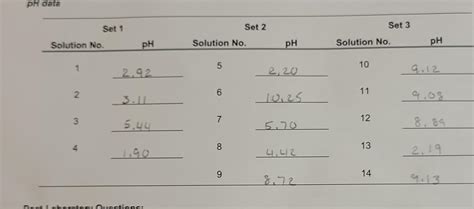 pH data
Set 1 Set 2 Set 3
Solution No. pH Solution No. pH Solution No. pH
1 2.92 5 2.20 10 9.12
2 3.11 6 10.25 11 9.03
3 5.44 7 5.70 12 8.89
4 1.90 8 4.42 13 2.19
9 8.72 14 9.13
Post Laboratory Questions: